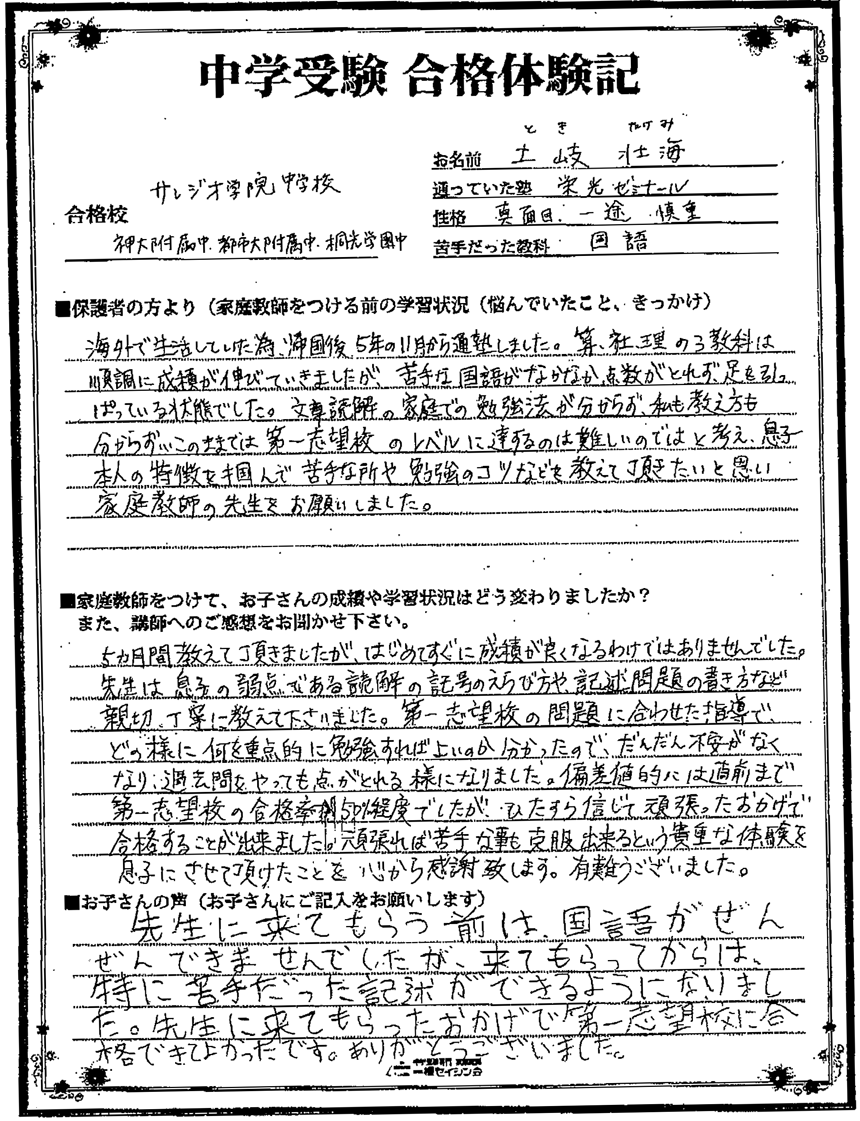 中学受験 合格体験記
とき たけみ
お名前 土岐 壮海
通っていた塾 栄光ゼミナール
性格 真面目、一途 慎重
苦手だった教科 国語
サレジオ学院中学校
合格校
神大附属中、都市大附属中、桐光学園中
■保護者の方より（家庭教師をつける前の学習状況（悩んでいたこと、きっかけ）
海外で生活していた為、帰国後、5年の11月から通塾しました。算、社、理の3教科は
順調に成績が伸びていきましたが、苦手な国語がなかなか点数がとれず、足を引っ
ぱっている状態でした。文章読解の家庭での勉強法が分からず、私も教え方も
分からずいこのままでは第一志望校のレベルに達するのは難しいのではと考え、息子
本人の特徴を掴んで苦手な所や勉強のコツなどを教えて頂きたいと思い
家庭教師の先生をお願いしました。
■家庭教師をつけて、お子さんの成績や学習状況はどう変わりましたか？
また、講師へのご感想をお聞かせ下さい。
5カ月間教えて頂きましたが、はじめてすぐに成績が良くなるわけではありませんでした。
先生は息子の弱点である読解の記号のえらび方や、記述問題の書き方など
親切、丁寧に教えて下さいました。第一志望校の問題に合わせた指導で、
どの様に何を重点的に勉強すればよいのか分かったので、だんだん不安がなく
なり、過去問をやっても点がとれる様になりました。偏差値的には直前まで
第一志望校の合格率50%程度でしたが、ひたすら信じて頑張ったおかげで
合格することが出来ました。頑張れば苦手な事も克服出来るという貴重な体験を
息子にさせて頂けたことを心から感謝致します。有難うございました。
■お子さんの声（お子さんにご記入をお願いします）
先生に来てもらう前は、国語がぜん
ぜんできませんでしたが、来てもらってからは、
特に苦手だった記述ができるようになりまし
た。先生に来てもらったおかげで第一志望校に合
格できてよかったです。ありがとうございました。
一橋セイシン会